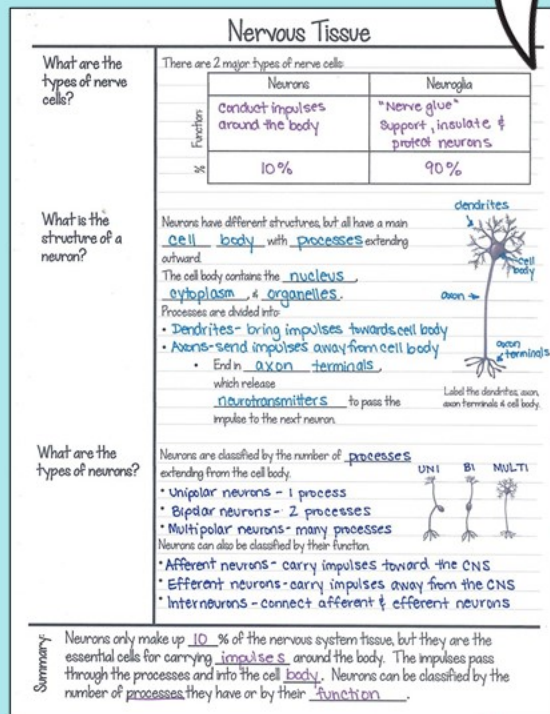 Nervous Tissue
What are the
types of nerve
cells?
There are 2 major types of nerve cells:
Neurons
Neuroglia
Function
Conduct impulses
around the body
"Nerve glue"
Support, insulate &
protect neurons
%
10%
90%
What is the
structure of a
neuron?
Neurons have different structures, but all have a main
cell body with processes extending
outward.
The cell body contains the nucleus,
cytoplasm, & organelles.
Processes are divided into:
• Dendrites- bring impulses towards cell body
• Axons-send impulses away from cell body
• End in axon terminals,
which release
neurotransmitters to pass the
impulse to the next neuron.
dendrites
cell
body
axon
axon
terminals
Label the dendrites, axon,
axon terminals & cell body.
What are the
types of neurons?
Neurons are classified by the number of processes
extending from the cell body.
• Unipolar neurons - 1 process
• Bipolar neurons- 2 processes
• Multipolar neurons- many processes
UNI BI MULTI
Neurons can also be classified by their function.
• Afferent neurons - carry impulses toward the CNS
• Efferent neurons-carry impulses away from the CNS
• Interneurons - connect afferent & efferent neurons
Summary:
Neurons only make up 10 % of the nervous system tissue, but they are the
essential cells for carrying impulses around the body. The impulses pass
through the processes and into the cell body. Neurons can be classified by the
number of processes they have or by their function.